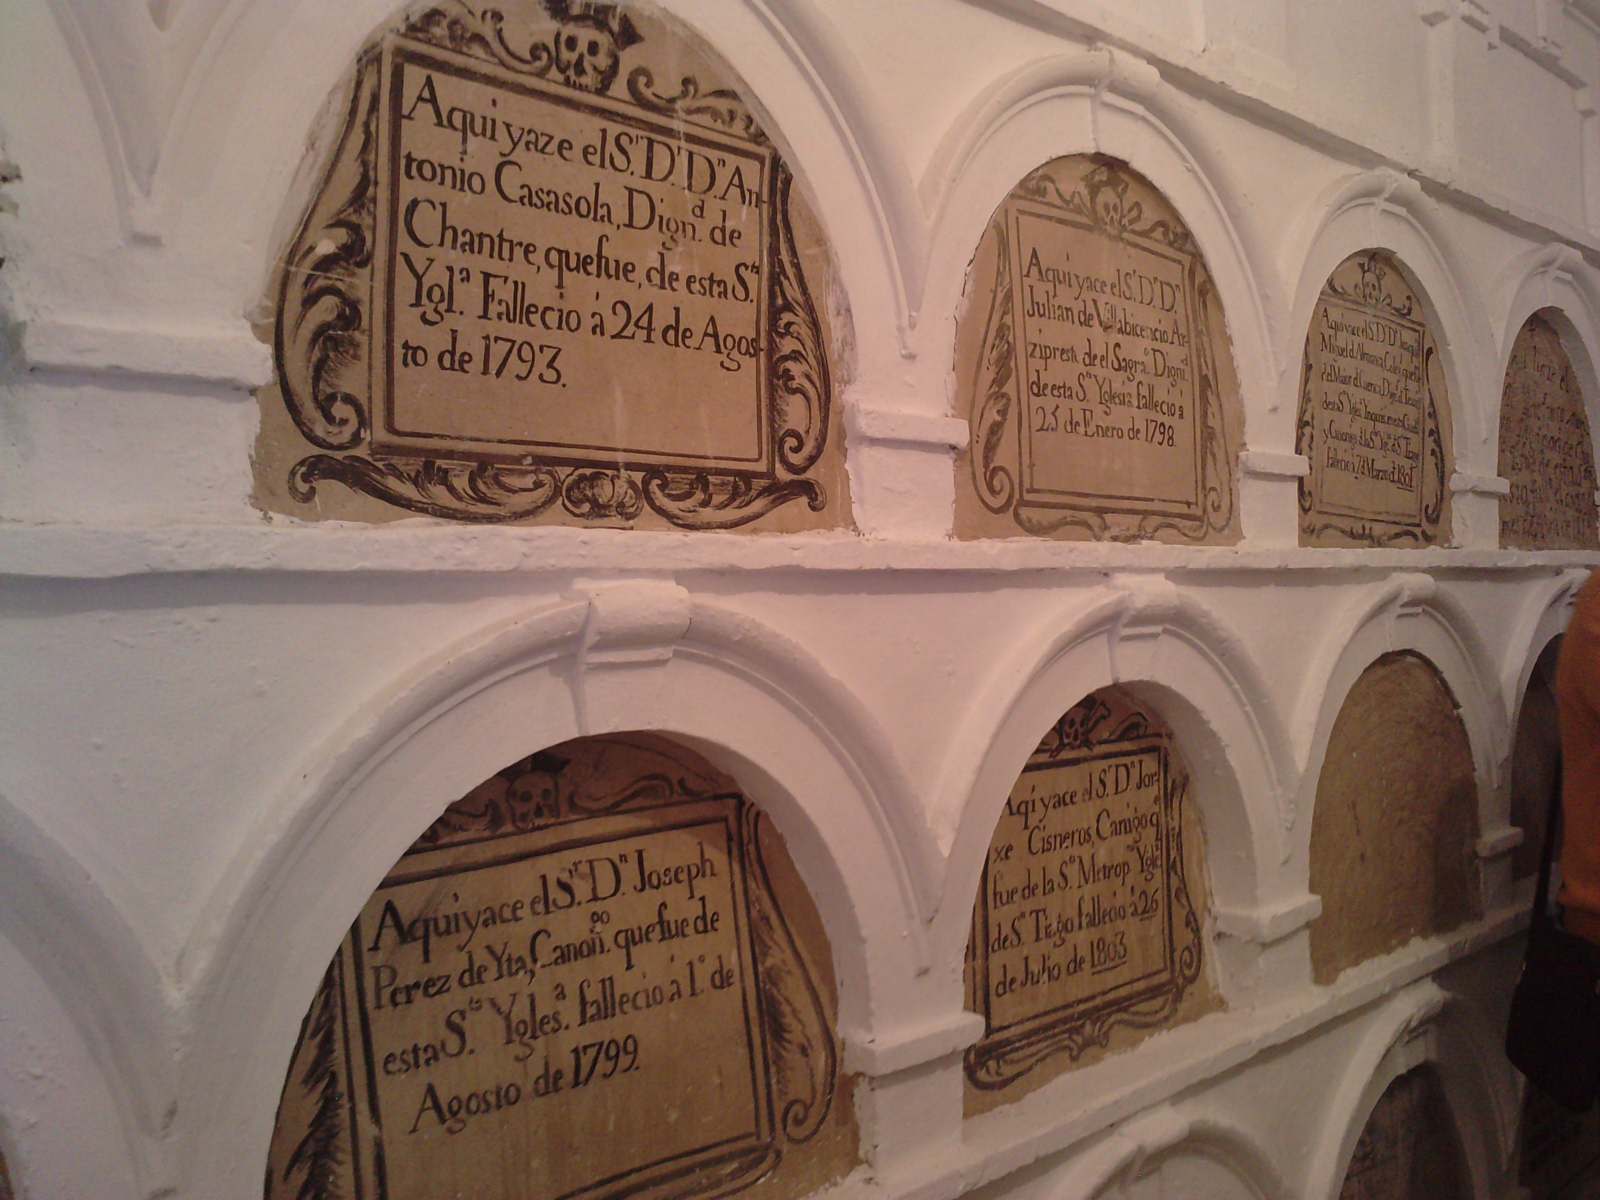 Aqui yaze el S.ʳ D.ʳ D.ⁿ An-
tonio Casasola, Dign.ᵈ de
Chantre, que fue, de esta S.ᵗᵃ
Ygl.ᵃ Fallecio á 24 de Agos-
to de 1793.
Aqui yace el S.ʳ D.ʳ D.ⁿ
Julian de Villabicencio Ar-
zipreste de el Sagr.º Dign.ᵈ
de esta S.ᵗᵃ Yglesia fallecio á
25 de Enero de 1798.
Aqui yace el S.ʳ D.ʳ D.ⁿ
Miguel de
de esta S.ᵗᵃ Ygl.ᵃ
y Canonigo de la S.ᵗᵃ
fallecio á 7 de Marzo de 1801
Aqui yace el S.ʳ D.ⁿ Joseph
Perez de Yta, Canon.ᵍᵒ que fue de
esta S.ᵗᵃ Ygles.ᵃ fallecio á 1.º de
Agosto de 1799.
Aqi yace el S.ʳ D.ⁿ Jor-
xe Cisneros, Canigo q.ᵉ
fue de la S.ᵗᵃ Metrop.ⁿᵃ Ygle.ᵃ
de S.ⁿ Tiago fallecio á 26
de Julio de 1803